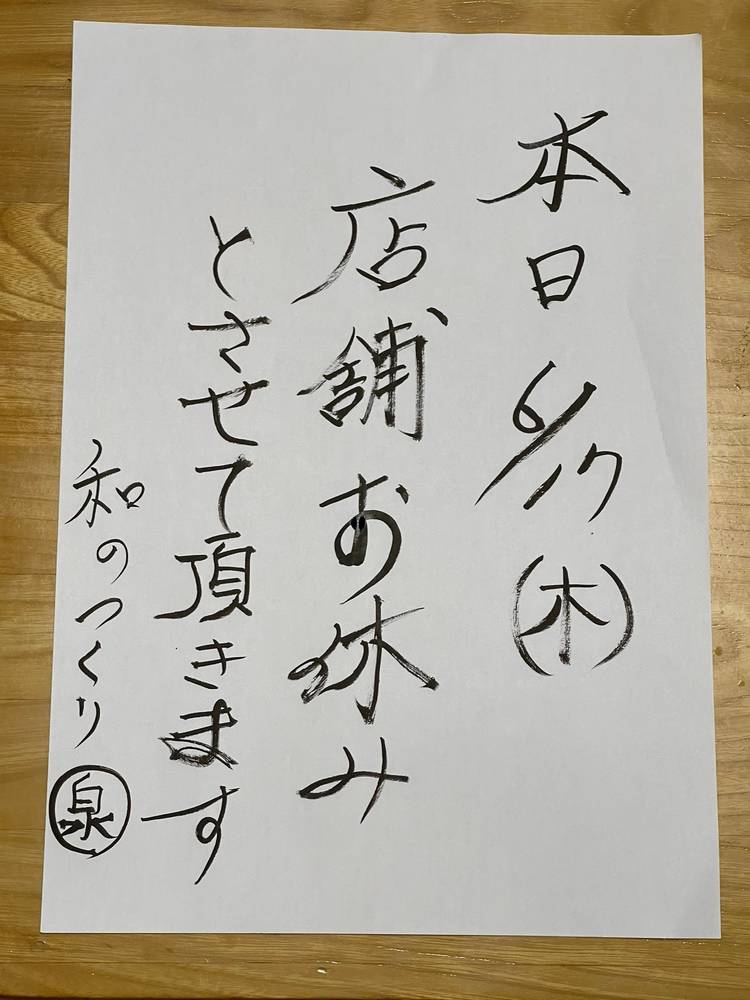 本日6/17(木)
店舗お休み
とさせて頂きます
和のつくり 泉